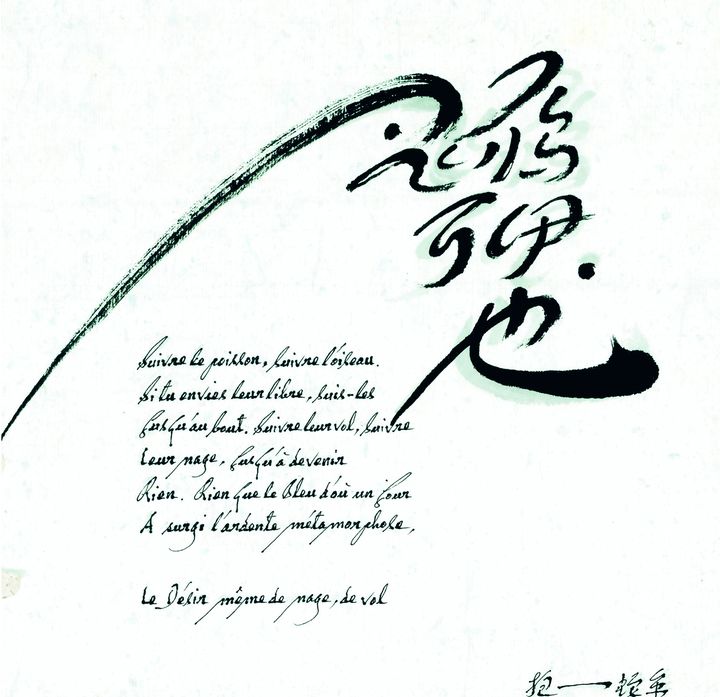 也
Suivre le poisson, suivre l'oiseau.
Si tu envies leur libre, suis-les
Jusqu'au bout. Suivre leur vol, suivre
Leur nage, Jusqu'à devenir
Rien. Rien que le Bleu d'où un Jour
A surgi l'ardente métamorphose,
Le Désir même de nage, de vol
抱一